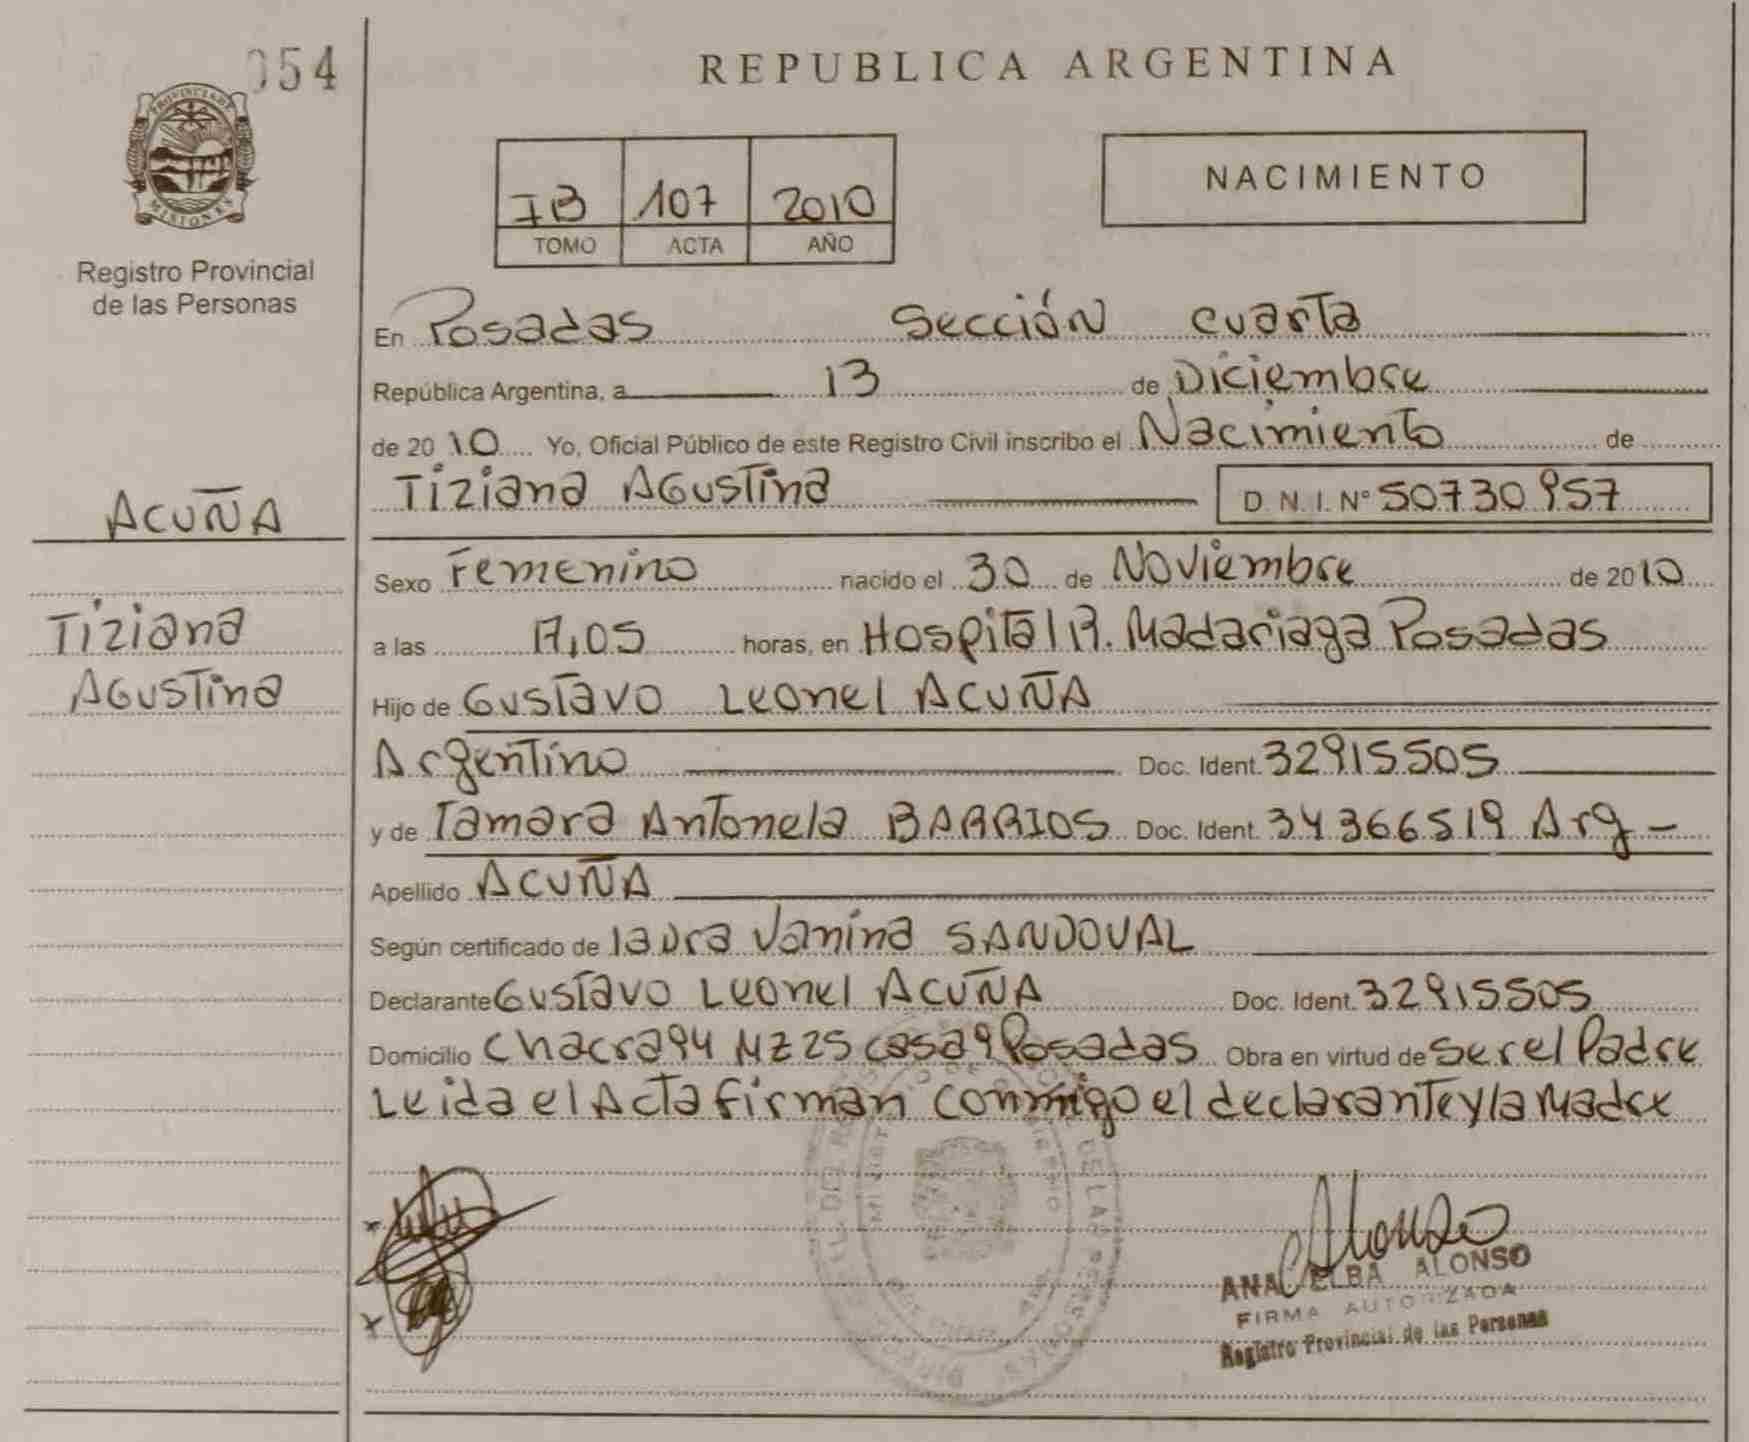 054
REPUBLICA ARGENTINA
PROVINCIA DE
MISIONES
Registro Provincial
de las Personas
IB 107 2010
TOMO ACTA AÑO
NACIMIENTO
En Posadas Sección cuarta
República Argentina, a 13 de Diciembre
de 2010 Yo, Oficial Público de este Registro Civil inscribo el Nacimiento de
Tiziana Agustina D.N.I. Nº 50730957
ACUÑA
Tiziana
Agustina
Sexo Femenino nacido el 30 de Noviembre de 2010
a las 17,05 horas, en Hospital R. Madariaga Posadas
Hijo de Gustavo Leonel ACUÑA
Argentino Doc. Ident. 32915505
y de Tamara Antonela BARRIOS Doc. Ident. 34366519 Arg -
Apellido ACUÑA
Según certificado de laura Vanina SANDOVAL
Declarante Gustavo Leonel ACUÑA Doc. Ident. 32915505
Domicilio Chacra 94 MZ 25 casa 9 Posadas Obra en virtud de ser el Padre
Leida el Acta firman conmigo el declarante y la Madre
Alonso
ANA ELBA ALONSO
FIRMA AUTORIZADA
Registro Provincial de las Personas